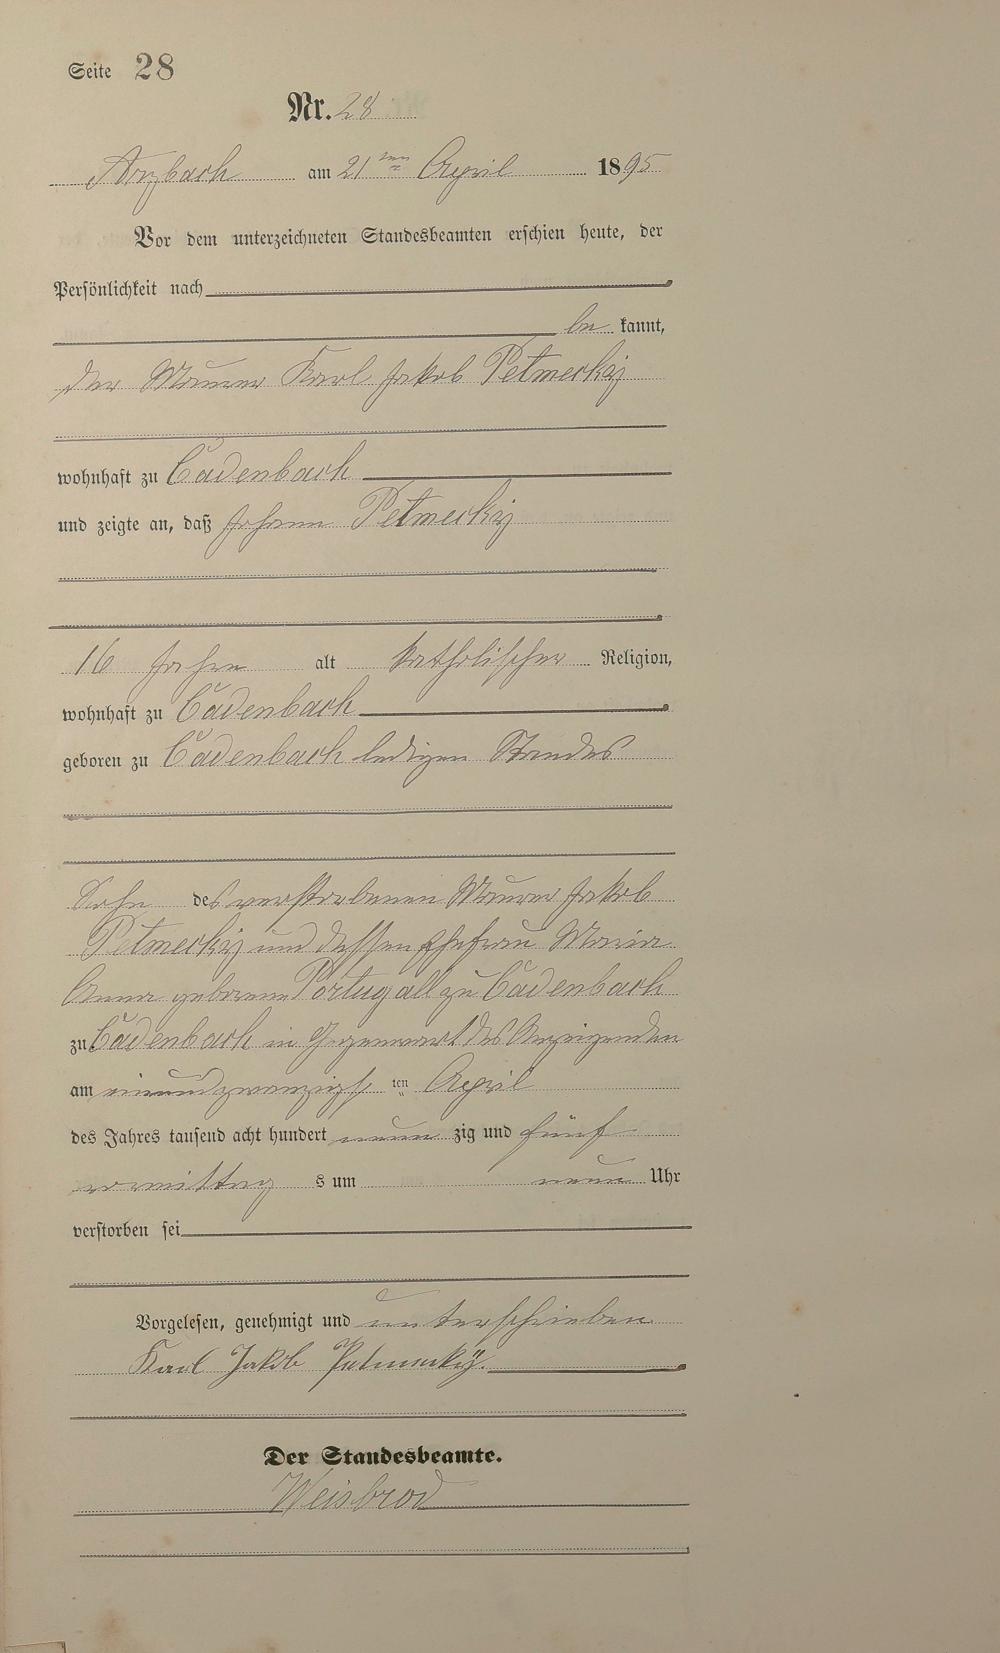 Seite 28
Nr. 28
Arzbach am 21ten April 1895
Vor dem unterzeichneten Standesbeamten erschien heute, der
Persönlichkeit nach
be kannt,
der Maurer Karl Jakob Petmecky
wohnhaft zu Cadenbach
und zeigte an, daß Johann Petmecky
16 Jahre alt katholischer Religion,
wohnhaft zu Cadenbach
geboren zu Cadenbach ledigen Standes
Sohn des verstorbenen Maurer Jakob
Petmecky und dessen Ehefrau Maria
Anna geborene Portugall zu Cadenbach
zu Cadenbach in Gegenwart des Anzeigenden
am einundzwanzigsten April
des Jahres tausend acht hundert neun zig und fünf
vormittag s um neun Uhr
verstorben sei
Vorgelesen, genehmigt und unterschrieben
Karl Jakob Petmecky.
Der Standesbeamte.
Weisbrod